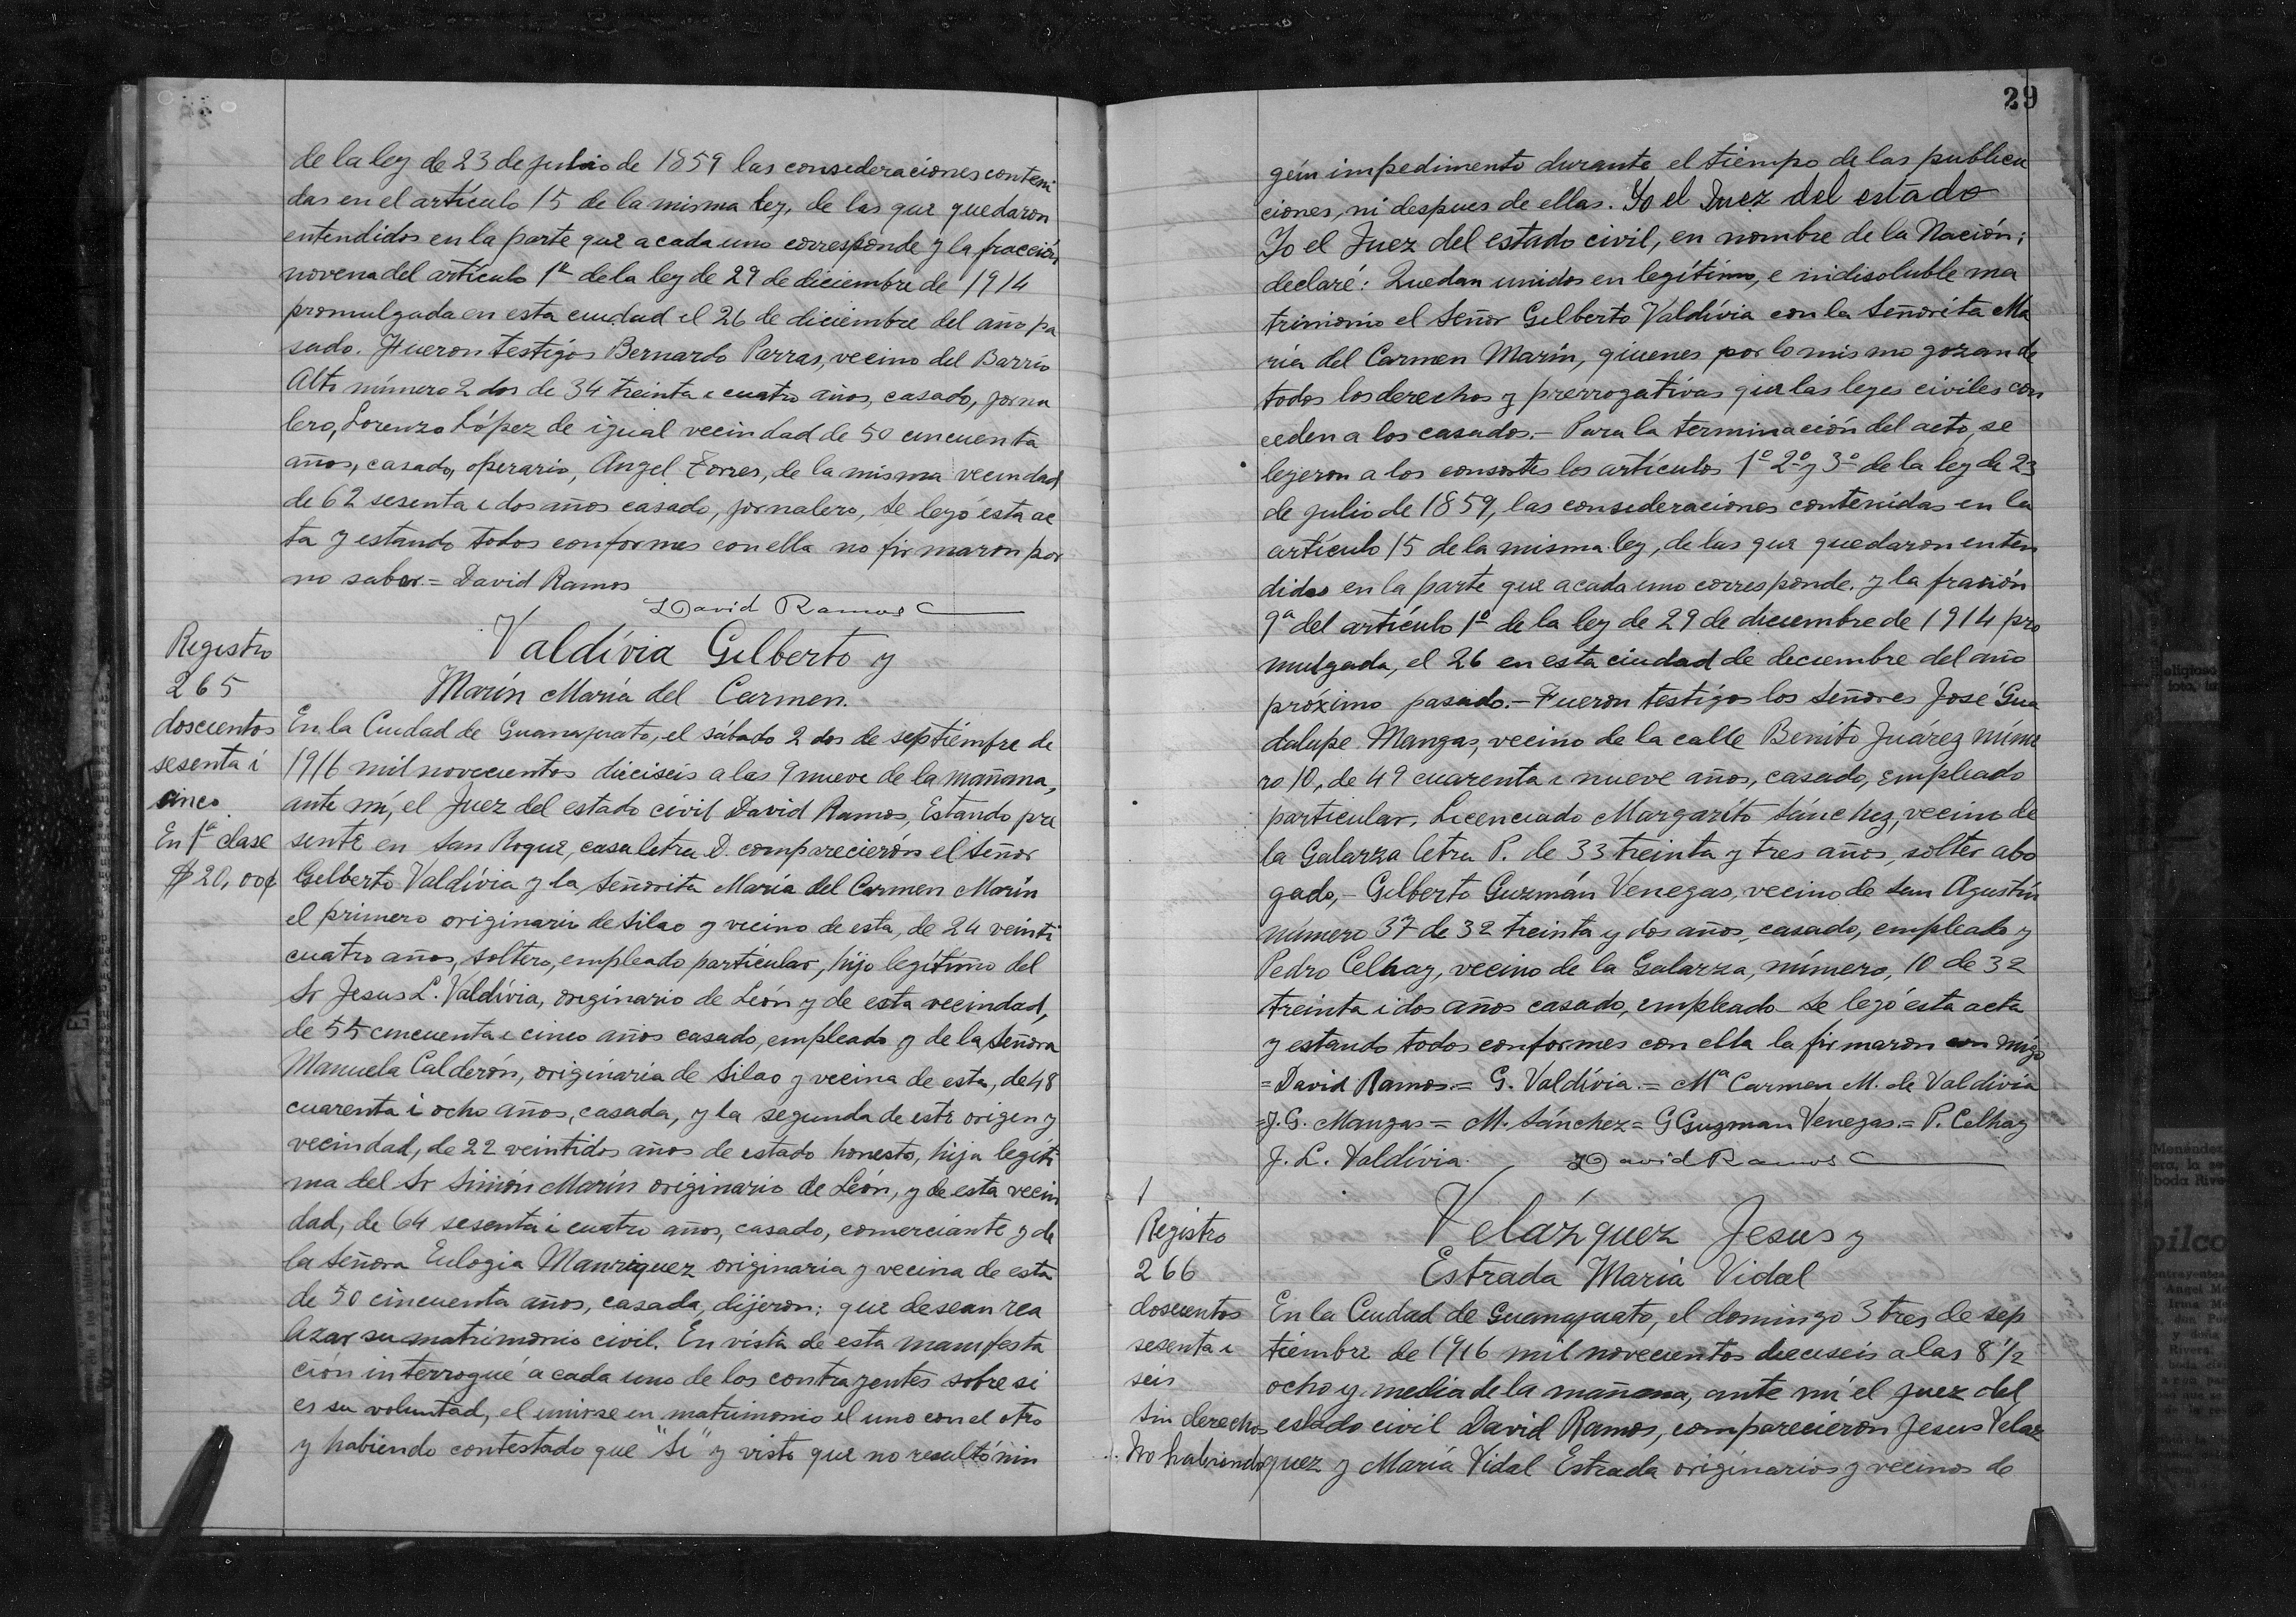 de la ley de 23 de julio de 1859 las consideraciones conteni
das en el artículo 15 de la misma ley, de las que quedaron
entendidos en la parte que a cada uno corresponde y la fracción
novena del artículo 1º de la ley de 29 de diciembre de 1914
promulgada en esta ciudad el 26 de diciembre del año pa
sado. Fueron testigos Bernardo Parras, vecino del Barrio
Alto número 2 dos de 34 treinta i cuatro años, casado, jorna
lero, Lorenzo López de igual vecindad de 50 cincuenta
años, casado, operario, Angel Torres, de la misma vecindad
de 62 sesenta i dos años casado, jornalero, Se leyó esta ac
ta y estando todos conformes con ella no firmaron por
no saber = David Ramos
David Ramos
Valdívia Gilberto y
Marín María del Carmen.
Registro
265
doscientos
sesenta i
cinco
En 1ª clase
$20,00¢
En la Ciudad de Guanajuato, el sábado 2 dos de septiembre de
1916 mil novecientos dieciseis a las 9 nueve de la mañana,
ante mí, el Juez del estado civil David Ramos, Estando pre
sente en San Roque, casa letra D. comparecierón el Señor
Gilberto Valdívia y la Señorita María del Carmen Marín
el primero originario de Silao y vecino de esta, de 24 veinti
cuatro años, soltero, empleado particular, hijo legítimo del
Sr Jesus L. Valdívia, originario de León y de esta vecindad,
de 55 cincuenta i cinco años casado, empleado y de la Señora
Manuela Calderón, originaria de Silao y vecina de esta, de 48
cuarenta i ocho años, casada, y la segunda de este origen y
vecindad, de 22 veintidos años de estado honesto, hija legíti
ma del Sr Simón Marín originario de León, y de esta vecin
dad, de 64 sesenta i cuatro años, casado, comerciante y de
la Señora Eulogia Manriquez originaria y vecina de esta
de 50 cincuenta años, casada, dijeron: que desean rea
lizar su matrimonio civil. En vista de esta manifesta
ción interrogué a cada uno de los contrayentes sobre si
es su voluntad, el unirse en matrimonio el uno con el otro
y habiendo contestado que "Si" y visto que no resultó nin
29
gún impedimento durante el tiempo de las publica
ciones, ni despues de ellas. Yo el Juez del estado
Yo el Juez del estado civil, en nombre de la Nación;
declaré: Quedan unidos en legítimo, e indisoluble ma
trimonio el Señor Gilberto Valdívia con la Señorita Ma
ría del Carmen Marín, quienes por lo mismo gozan de
todos los derechos y prerrogativas que las leyes civiles con
ceden a los casados.- Para la terminación del acto, se
leyeron a los consortes los artículos 1º 2º y 3º de la ley de 23
de julio de 1859, las consideraciones contenidas en la
artículo 15 de la misma ley, de las que quedaron enten
didos en la parte que a cada uno corresponde. y la fración
9ª del artículo 1º de la ley de 29 de diciembre de 1914 pro
mulgada, el 26 en esta ciudad de diciembre del año
próximo pasado.- Fueron testigos los Señores José Gua
dalupe Mangas, vecino de la calle Benito Juárez núme
ro 10, de 49 cuarenta i nueve años, casado, empleado
particular, Licenciado Margaríto Sánchez, vecino de
la Galarza letra P. de 33 treinta y tres años, solter abo
gado,- Gilberto Guzmán Venegas, vecino de San Agustín
número 37 de 32 treinta y dos años, casado, empleado y
Pedro Celhay, vecino de la Galarza, número, 10 de 32
treinta i dos años casado, empleado- Se leyó esta acta
y estando todos conformes con ella la firmaron con migo
= David Ramos.= G. Valdívia.= Mª Carmen M. de Valdivia
= J. G. Mangas = M. Sánchez = G Guzman Venegas.= P. Celhay
J. L. Valdívia. David Ramos
Velázquez Jesus y
Estrada María Vidal
1
Registro
266
doscientos
sesenta i
seis
Sin derechos
No habiendo
En la Ciudad de Guanajuato, el domingo 3 tres de sep
tiembre de 1916 mil novecientos dieciseis a las 8 1/2
ocho y media de la mañana, ante mí el juez del
estado civil David Ramos, comparecieron Jesus Velaz
quez y María Vidal Estrada originarios y vecinos de